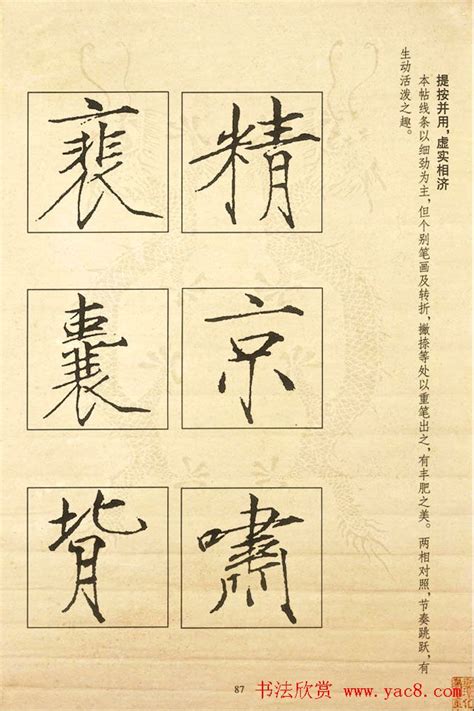 提按并用，虚实相济
本帖线条以细劲为主，但个别笔画及转折，撇捺等处以重笔出之，有丰肥之美。两相对照，节奏跳跃，有
生动活泼之趣。
精
京
嘯
裵
囊
背
87
书法欣赏 www.yac8.com